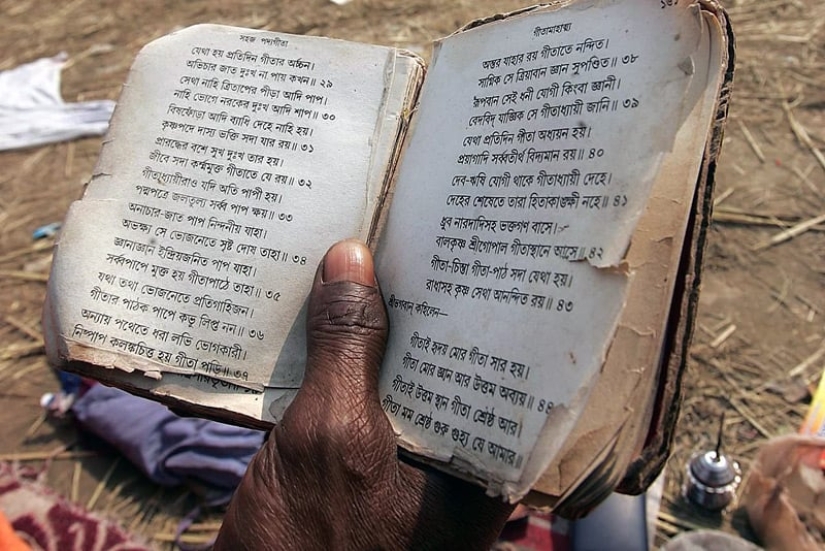 সহজ পদ্যগীতা
যেথা হয় প্রতিদিন গীতার অর্চ্চন।
অভিচার জাত দুঃখ না পায় কখন॥ ২৯
সেথা নাহি ত্রিতাপের পীড়া আদি পাপ।
নাহি ভোগে নরকের দুঃখ আদি শাপ॥ ৩০
বিষফোঁড়া আদি ব্যাধি দেহে নাহি হয়।
কৃষ্ণপদে দাস্য ভক্তি সদা যার রয়॥ ৩১
প্রারব্ধের বশে সুখ দুঃখ তার হয়।
জীবে সদা কর্ম্মমুক্ত গীতাতে যে রয়॥ ৩২
গীতাধ্যায়ীরাও যদি অতি পাপী হয়।
পদ্মপত্রে জলতুল্য সর্ব্ব পাপ ক্ষয়॥ ৩৩
অনাচার-জাত পাপ নিন্দনীয় যাহা।
অভক্ষ্য সে ভোজনেতে সৃষ্ট দোষ তাহা॥ ৩৪
জ্ঞানাজ্ঞান ইন্দ্রিয়জনিত পাপ যাহা।
সর্ব্বপাপে মুক্ত হয় গীতাপাঠে তাহা॥ ৩৫
যথা তথা ভোজনেতে প্রতিগাহিজন।
গীতার পাঠক পাপে কভু লিপ্ত নন॥ ৩৬
অন্যায় পথেতে ধরা লভি ভোগকারী।
নিষ্পাপ কলঙ্কচিত্ত হয় গীতা পড়ি॥ ৩৭
গীতামাহাত্ম্য
অন্তর যাহার রয় গীতাতে নন্দিত।
সাগ্নিক সে ক্রিয়াবান জ্ঞান সুপণ্ডিত॥ ৩৮
রূপবান সেই ধনী যোগী কিংবা জ্ঞানী।
বেদবিদ্ যাজ্ঞিক সে গীতাধ্যায়ী জানি॥ ৩৯
যেথা প্রতিদিন গীতা অধ্যয়ন হয়।
প্রয়াগাদি সর্ব্বতীর্থ বিদ্যমান রয়॥ ৪০
দেব-ঋষি যোগী থাকে গীতাধ্যায়ী দেহে।
দেহের শেষেতে তারা হিতাকাঙ্ক্ষী নহে॥ ৪১
ধ্রুব নারদাদিসহ ভক্তগণ বাসে।
বালকৃষ্ণ শ্রীগোপাল গীতাস্থানে আসে॥ ৪২
গীতা-চিন্তা গীতা-পাঠ সদা যেথা হয়।
রাধাসহ কৃষ্ণ সেথা আনন্দিত রয়॥ ৪৩
শ্রীভগবান্ কহিলেন—
গীতাই হৃদয় মোর গীতা সার হয়।
গীতা মোর জ্ঞান আর উত্তম অব্যয়॥ ৪৪
গীতাই উত্তম স্থান গীতা শ্রেষ্ঠ আর।
গীতা মম শ্রেষ্ঠ গুরু গুহ্য যে আমার॥